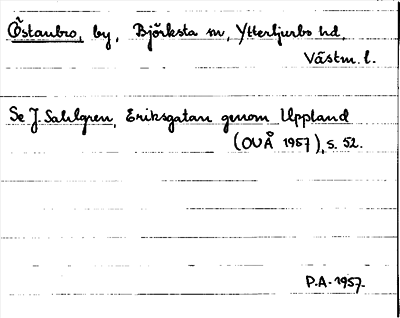 Östanbro, by, Björksta sn, Yttertjurbo hd,
Västm. l.
Se J. Sahlgren, Eriksgatan genom Uppland
(OUÅ 1957), s. 52.
P.A. 1957.